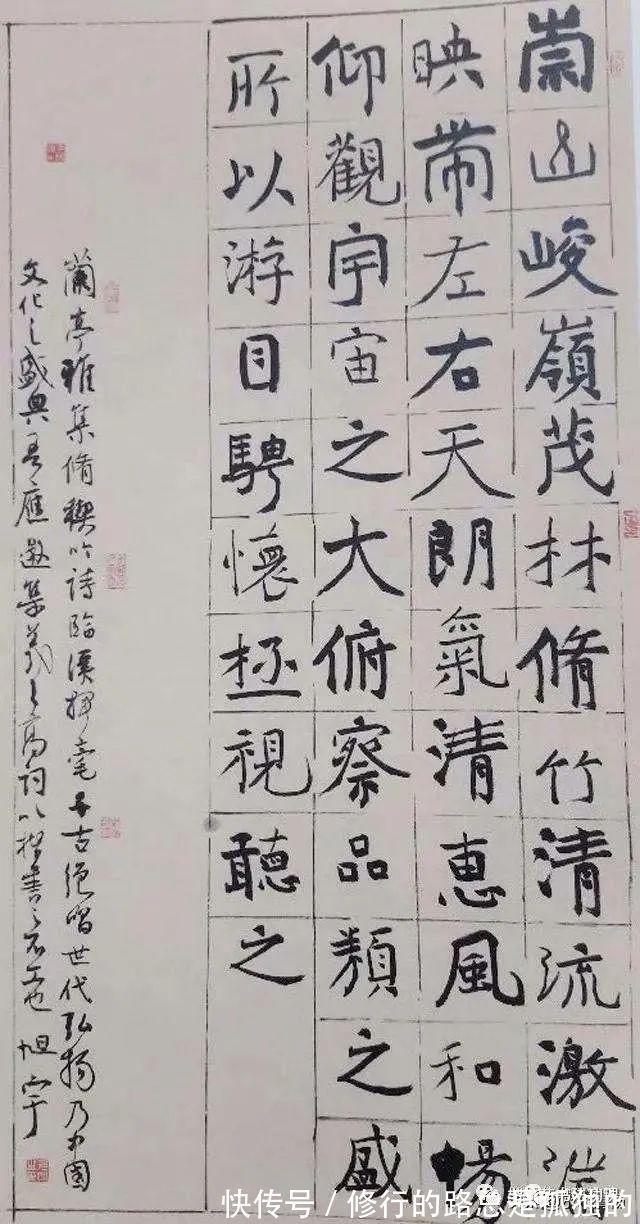 崇山峻嶺茂林脩竹清流激湍
映帶左右天朗氣清惠風和暢
仰觀宇宙之大俯察品類之盛
所以游目騁懷極視聽之
蘭亭雅集脩禊吟詩臨溪揮毫千古絕唱世代弘揚乃中國
文化之盛典吾應邀集羲之高詞以楷書之不工也 旭宇
快传号 / 修行的路总是孤独的